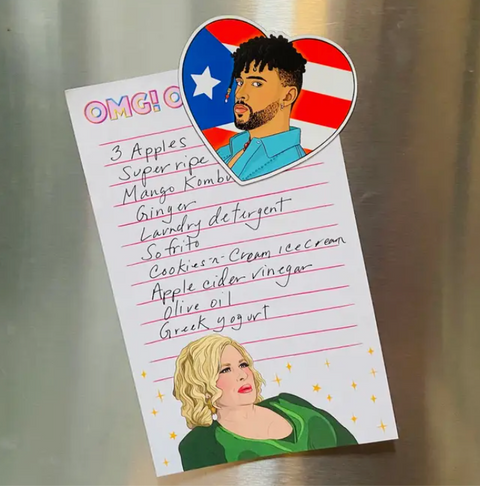 OMG! O
3 Apples
Super ripe
Mango Kombu
Ginger
Laundry detergent
Sofrito
Cookies-n-Cream ice cream
Apple cider vinegar
Olive oil
Greek yogurt